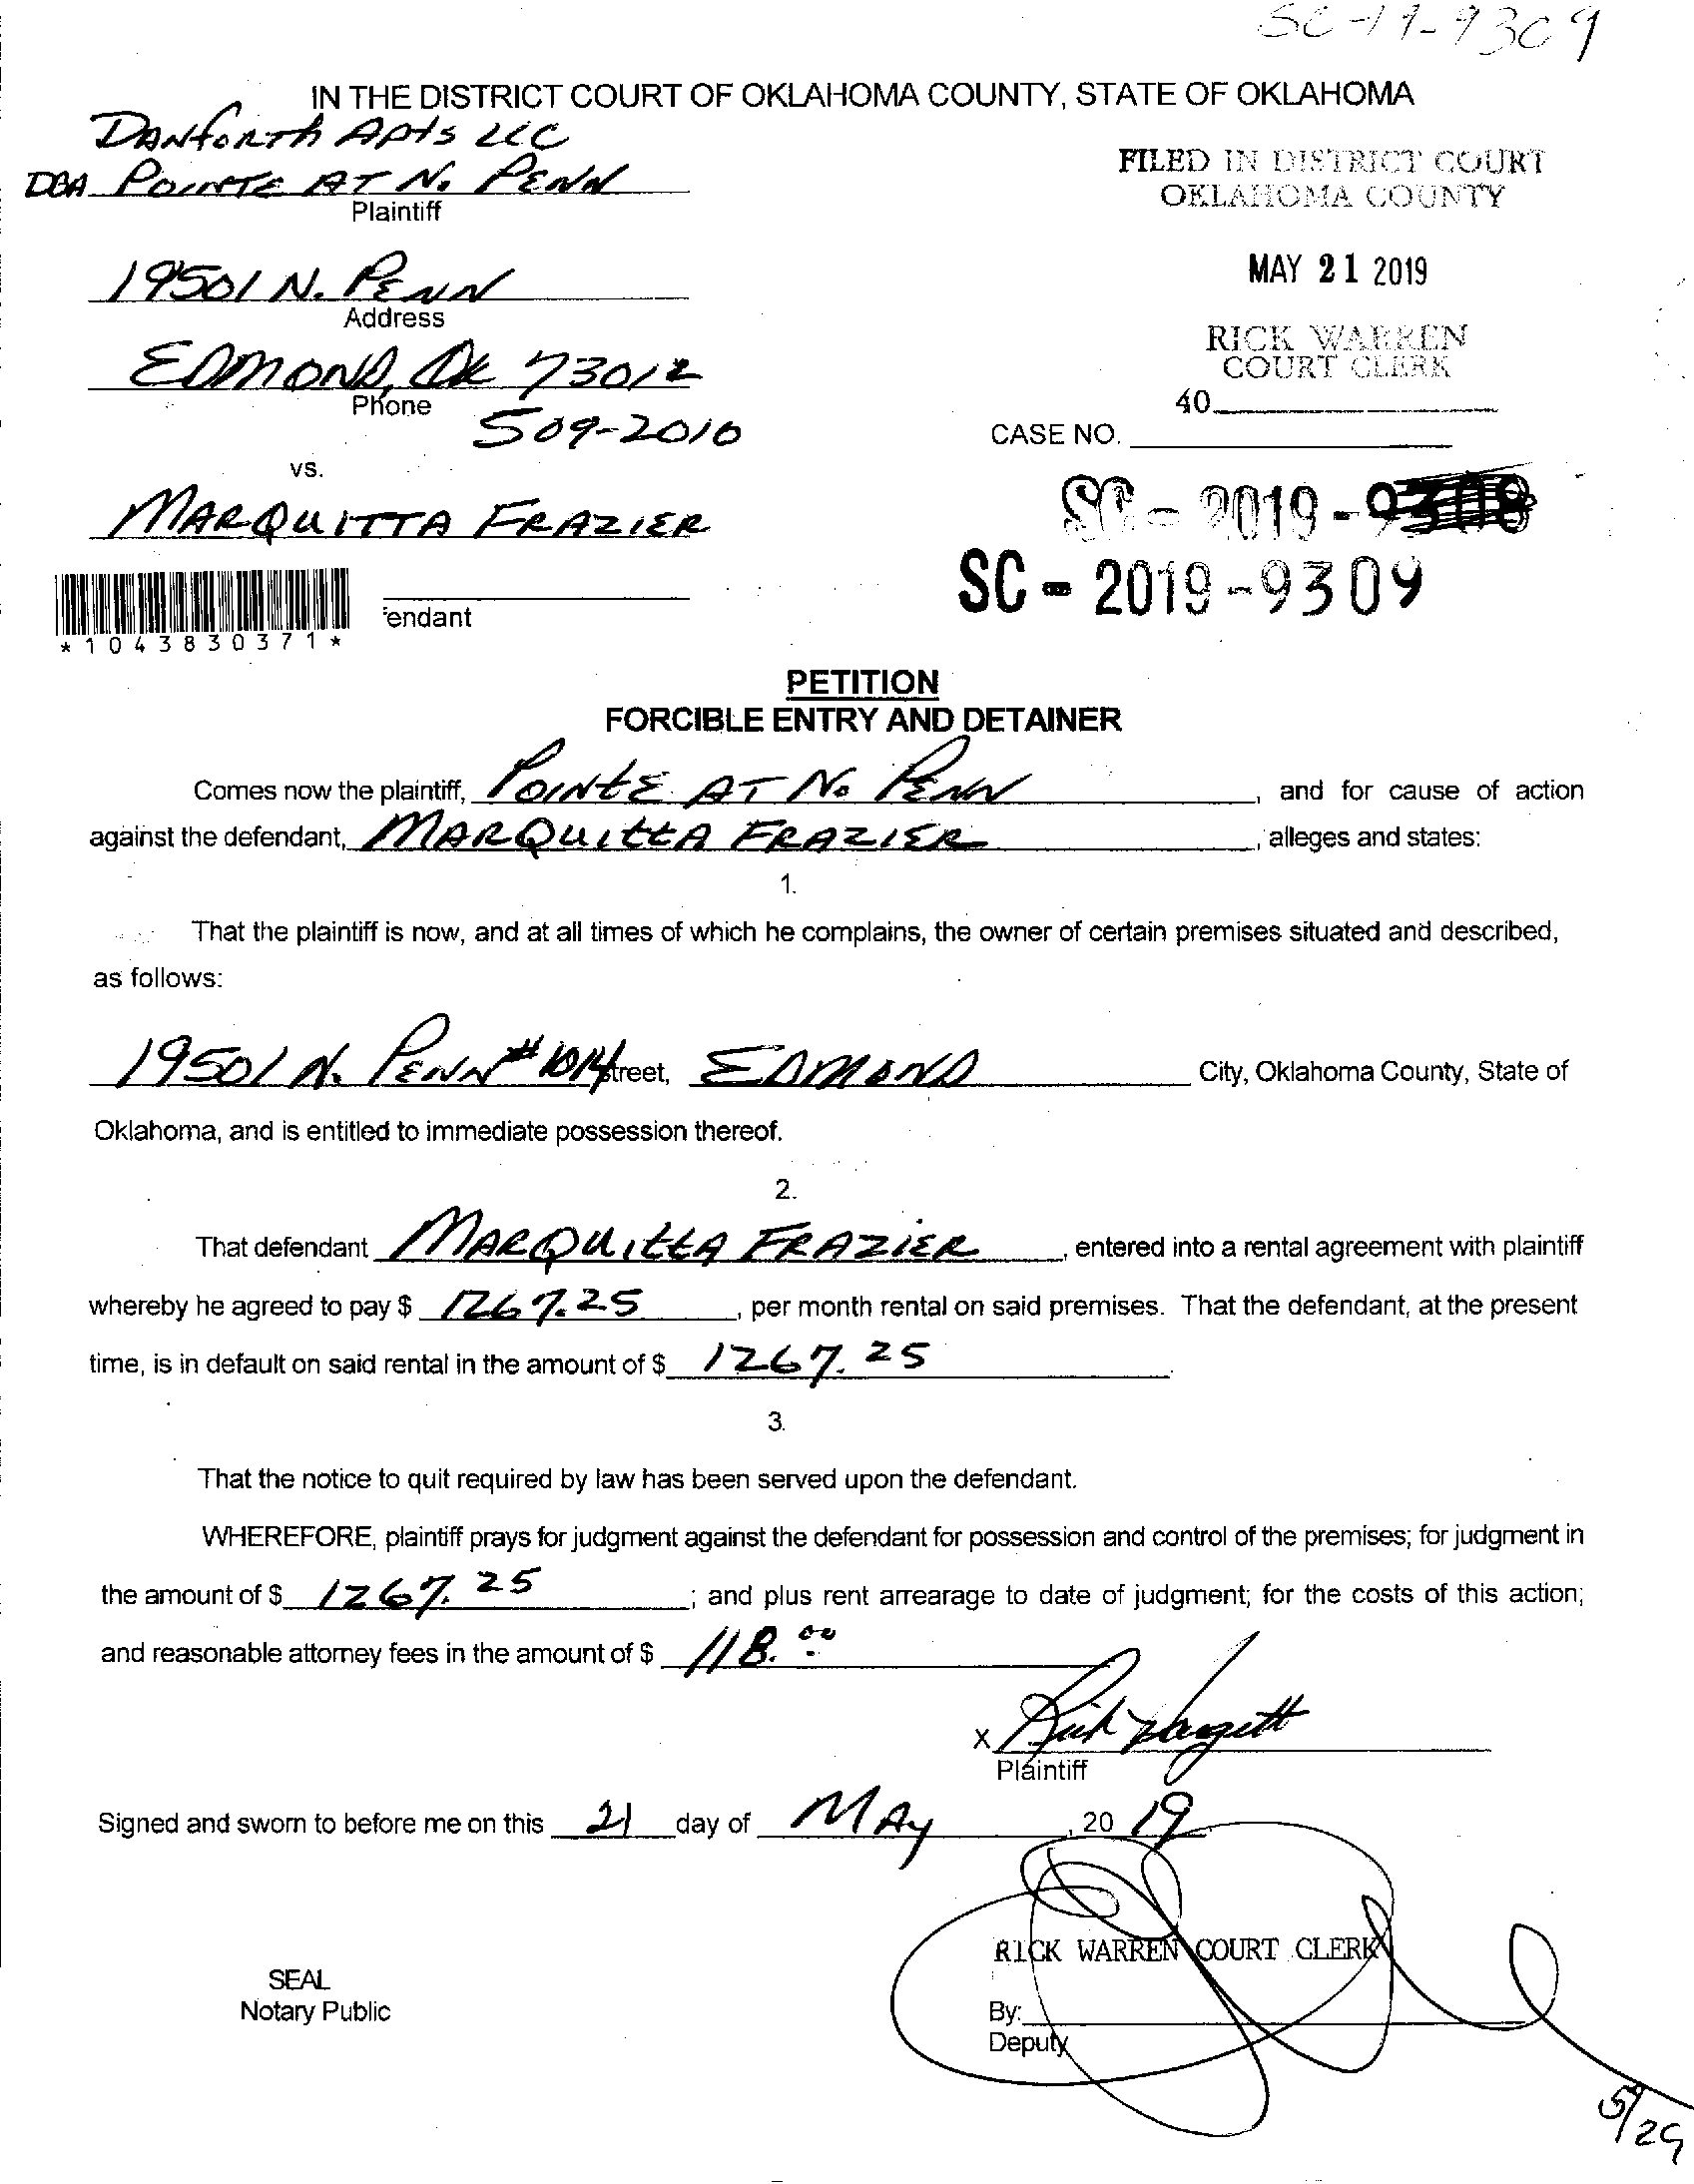 SC-19-9309
IN THE DISTRICT COURT OF OKLAHOMA COUNTY, STATE OF OKLAHOMA
DANFORTH APTS LLC
DBA POINTE AT N. PENN
Plaintiff
FILED IN DISTRICT COURT
OKLAHOMA COUNTY
19501 N. PENN
Address
MAY 21 2019
EDMOND, OK 73012
Phone
509-2010
RICK WARREN
COURT CLERK
40
CASE NO.
vs.
MARQUITTA FRAZIER
SC - 2019 - 9308
SC - 2019 - 9309
endant
*1043830371*
PETITION
FORCIBLE ENTRY AND DETAINER
Comes now the plaintiff, POINTE AT No PENN, and for cause of action
against the defendant, MARQUITTA FRAZIER, alleges and states:
1.
That the plaintiff is now, and at all times of which he complains, the owner of certain premises situated and described,
as follows:
19501 N. PENN #1014 treet, EDMOND City, Oklahoma County, State of
Oklahoma, and is entitled to immediate possession thereof.
2.
That defendant MARQUITTA FRAZIER, entered into a rental agreement with plaintiff
whereby he agreed to pay $ 1267.25, per month rental on said premises. That the defendant, at the present
time, is in default on said rental in the amount of $ 1267.25.
3.
That the notice to quit required by law has been served upon the defendant.
WHEREFORE, plaintiff prays for judgment against the defendant for possession and control of the premises; for judgment in
the amount of $ 1267.25; and plus rent arrearage to date of judgment; for the costs of this action;
and reasonable attorney fees in the amount of $ 118.00
x
Plaintiff
Signed and sworn to before me on this 21 day of MAY, 20 19
RICK WARREN COURT CLERK
SEAL
Notary Public
By:
Deputy
5/29